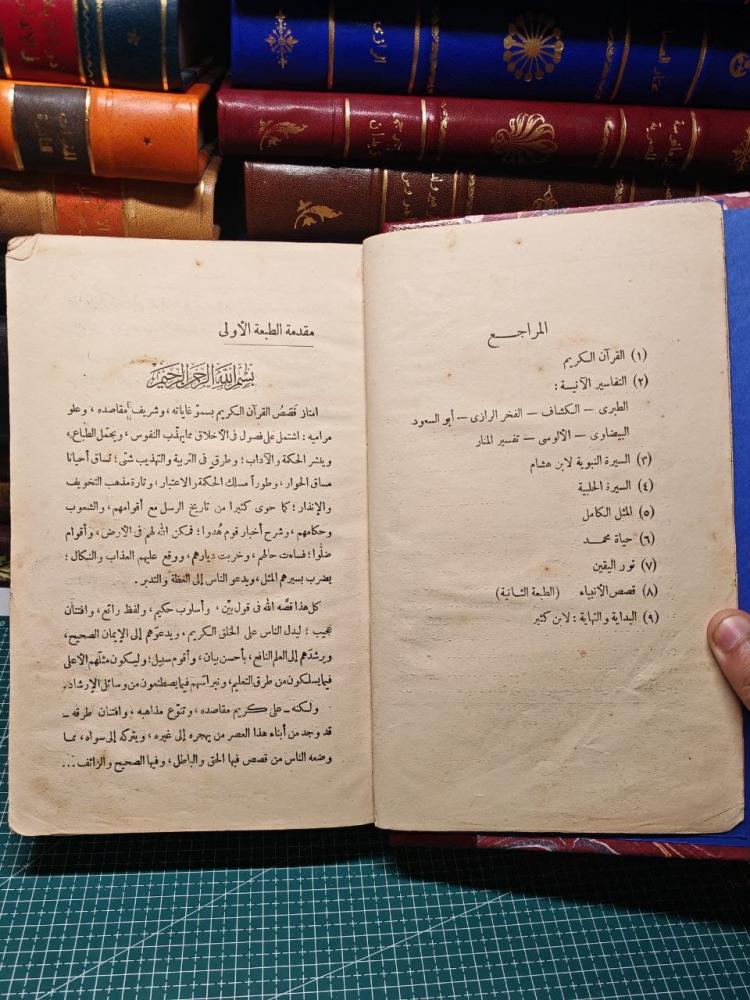 الرازى
مختار الصحاح
المراجع
(١) القرآن الكريم
(٢) التفاسير الآتية :
الطبرى – الكشاف – الفخر الرازى – أبو السعود
البيضاوى – الألوسى – تفسير المنار
(٣) السيرة النبوية لابن هشام
(٤) السيرة الحلبية
(٥) المثل الكامل
(٦) حياة محمد
(٧) نور اليقين
(٨) قصص الأنبياء (الطبعة الثانية)
(٩) البداية والنهاية : لابن كثير
مقدمة الطبعة الأولى
بسم الله الرحمن الرحيم
امتاز قَصَصُ القرآن الكريم بسموّ غاياته ، وشريف مقاصده ، وعلو
مراميه : اشتمل على فصول فى الأخلاق مما يهذّب النفوس ، ويجمّل الطباع ،
وينشر الحكمة والآداب ؛ وطرق فى التربية والتهذيب شتّى ؛ تساق أحيانا
مساق الحوار ، وطوراً مسلك الحكمة والاعتبار ، وتارة مذهب التخويف
والإنذار ؛ كما حوى كثيرا من تاريخ الرسل مع أقوامهم ، والشعوب
وحكامهم ، وشرح أخبار قوم هُدوا ؛ فمكن الله لهم فى الأرض ، وأقوام
ضلّوا ؛ فساءت حالهم ، وخربت ديارهم ، ووقع عليهم العذاب والنكال ؛
يضرب بسيرهم المثل ، ويدعو الناس إلى العظة والتدبر .
كل هذا قصّه الله فى قول بيّن ، وأسلوب حكيم ، ولفظ رائع ، وافتنان
عجيب ؛ ليدل الناس على الخلق الكريم ، ويدعوَهم إلى الإيمان الصحيح ،
ويرشدَهم إلى العلم النافع ، بأحسن بيان ، وأقوم سبيل ؛ وليكون مثلَهم الأعلى
فيما يسلكون من طرق التعليم ، ونبراسَهم فيما يصطنعون من وسائل الإرشاد .
ولكنه – على كريم مقاصده ، وتنوّع مذاهبه ، وافتنان طرقه –
قد وجد من أبناء هذا العصر من يهجره إلى غيره ، ويتركه إلى سواه ، مما
وضعه الناس من قصص فيها الحق والباطل ، وفيها الصحيح والزائف ...